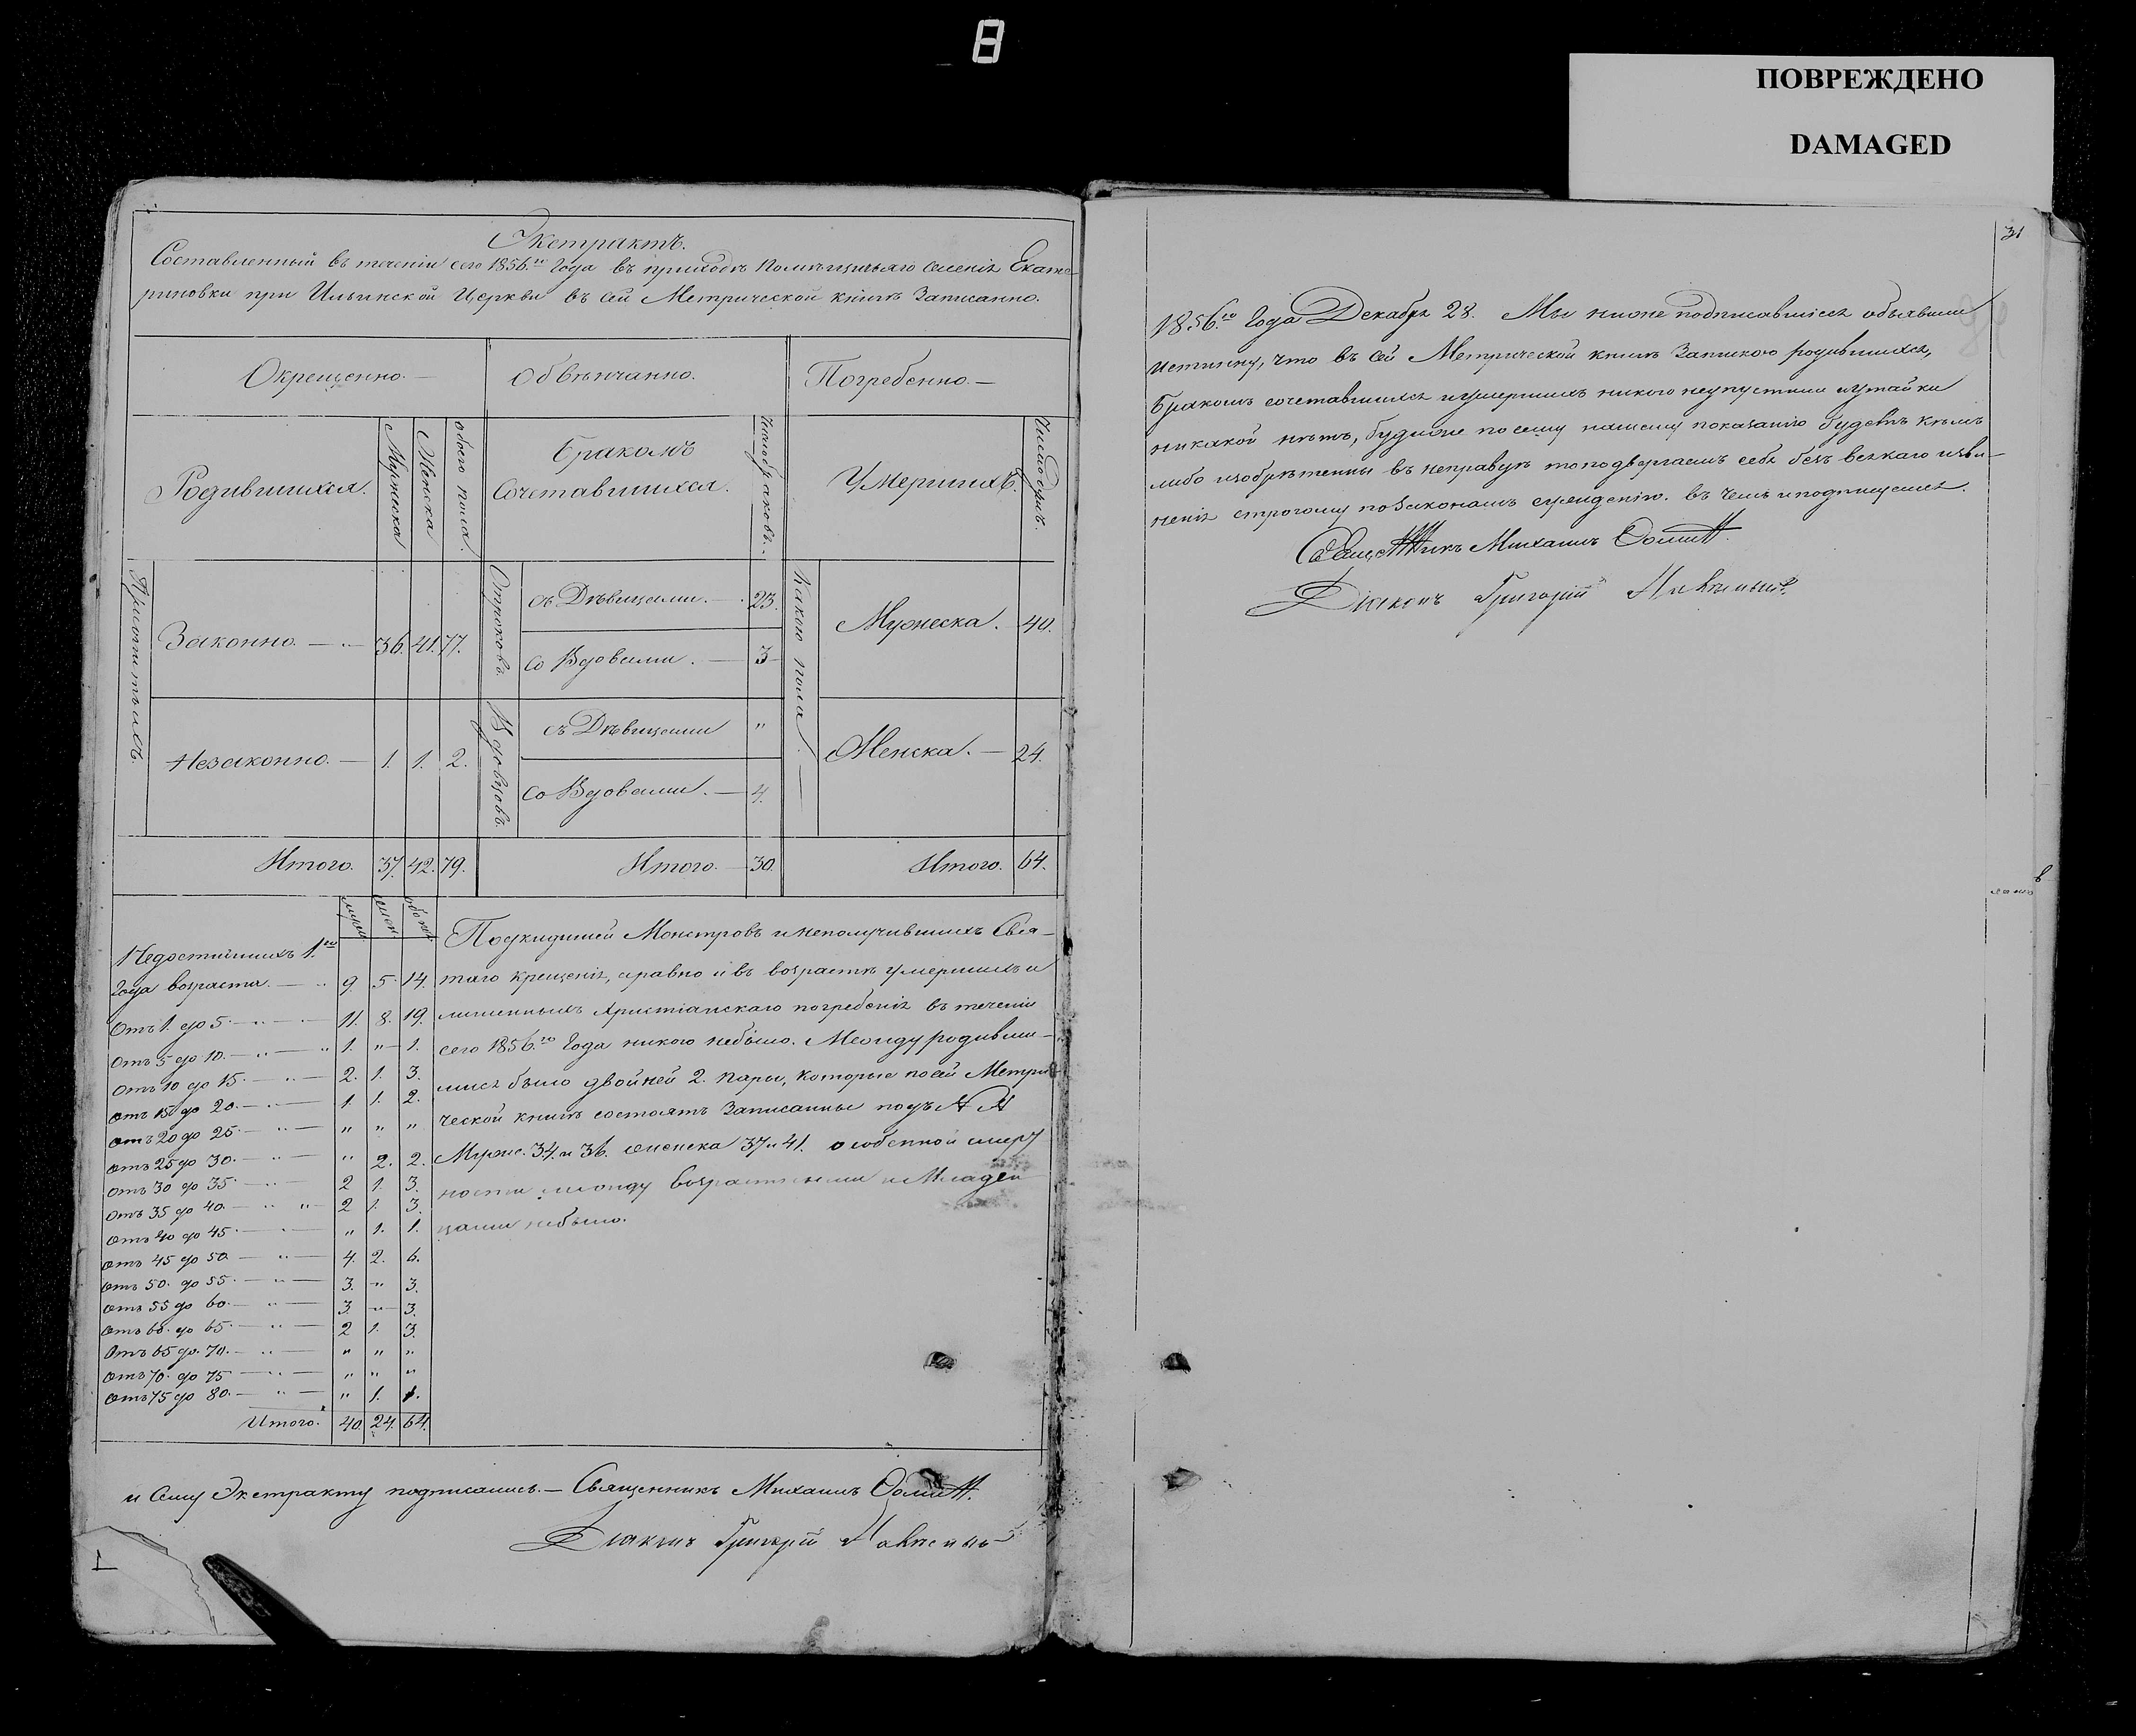 8
ПОВРЕЖДЕНО
DAMAGED
Экстрактъ.
Составленный въ теченіи сего 1856.го Года въ приходѣ Помѣщичьяго селенія Екате-
риновки при Ильинской Церкви въ сей Метрической книгѣ Записанно.
Окрещенно.—
Обвѣнчанно.
Погребенно.—
Родившихся.
Мужеска
Женска
обоего пола.
Бракомъ
Сочетавшихся.
Число браковъ.
Умершихъ.
Число душъ.
Законно. — 36. 41. 77.
Незаконно. — 1. 1. 2.
Отроковъ
съ Дѣвицами. — 23.
со Вдовами. — 3
Вдовцовъ.
съ Дѣвицами "
со Вдовами. — 4.
Какого пола
Мужеска. — 40.
Женска. — 24.
Итого. 37. 42. 79.
Итого. — 30.
Итого. 64.
Недостигшихъ 1.го
Года возраста. — 9. 5. 14.
Отъ 1. до 5. — 11. 8. 19.
Отъ 5 до 10. — 1. " 1.
Отъ 10 до 15. — 2. 1. 3.
отъ 15 до 20. — 1. 1. 2.
отъ 20 до 25. — " " "
отъ 25 до 30. — " 2. 2.
отъ 30 до 35. — 2 1. 3.
отъ 35 до 40. — 2 1. 3.
отъ 40 до 45. — " 1. 1.
отъ 45 до 50. — 4. 2. 6.
отъ 50. до 55. — 3. " 3.
отъ 55 до 60. — 3. " 3.
отъ 60. до 65. — 2 1. 3.
Отъ 65 до. 70. — " " "
отъ 70. до 75 — " " "
отъ 75 до 80. — " 1. 1.
Итого. 40. 24. 64.
Подкидышей Монстровъ и неполучившихъ Свя-
таго крещенія, а равно и въ возрастѣ умершихъ и
лишенныхъ Христіанскаго погребенія въ теченіи
сего 1856.го Года никого небыло. Между родивши-
мися было двойней 2. пары, которые по сей Метри
ческой книгѣ состоятъ Записанные подъ № №
Муже. 34. и 36. женска 37 и 41. особенной смерт
ности между возрастными и Младен
цами небыло.
и Сему Экстракту подписались.— Священникъ Михаилъ
Діаконъ Григорій
31
1856.го Года Декабря 28. Мы ниже подписавшіеся объявили
истинну, что въ сей Метрической книгѣ Запискою родившихся,
бракомъ сочетавшихся и умершихъ никого неупустили и утайки
никакой нѣтъ, будеже по сему нашему показанію будетъ кѣмъ
либо изобрѣтенны въ неправдѣ то подвергаемъ себя безъ всякаго изви-
ненія строгому по Законамъ сужденію. въ чемъ и подписуемся.
Священникъ Михаилъ
Діаконъ Григорій